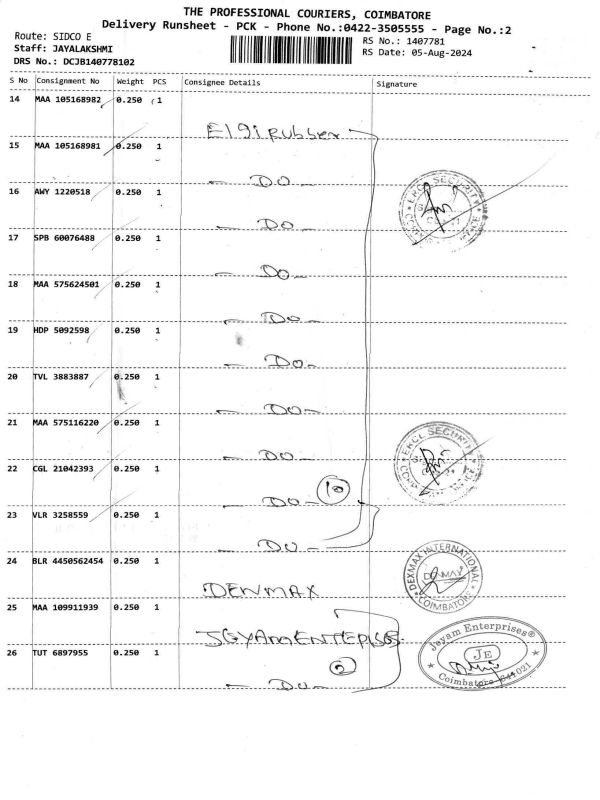 THE PROFESSIONAL COURIERS, COIMBATORE
Delivery Runsheet - PCK - Phone No.:0422-3505555 - Page No.:2
Route: SIDCO E
Staff: JAYALAKSHMI
DRS No.: DCJB140778102
RS No.: 1407781
RS Date: 05-Aug-2024
S No Consignment No Weight PCS Consignee Details Signature
14 MAA 105168982 0.250 1
Elgi Rubber
15 MAA 105168981 0.250 1
- Do -
16 AWY 1220518 0.250 1
- Do -
ERCL SECURITY
17 SPB 60076488 0.250 1
- Do -
18 MAA 575624501 0.250 1
- Do -
19 HDP 5092598 0.250 1
- Do -
20 TVL 3883887 0.250 1
- Do -
21 MAA 575116220 0.250 1
- Do -
ERCL SECURITY
22 CGL 21042393 0.250 1
- Do - 10
23 VLR 3258559 0.250 1
- Do -
24 BLR 4450562454 0.250 1
DENMAX
DEXMAX INTERNATIONAL
COIMBATORE
25 MAA 109911939 0.250 1
JGYAM ENTEPRISES
Jeyam Enterprises®
JE
Coimbatore 641 021
26 TUT 6897955 0.250 1
2
- Do -